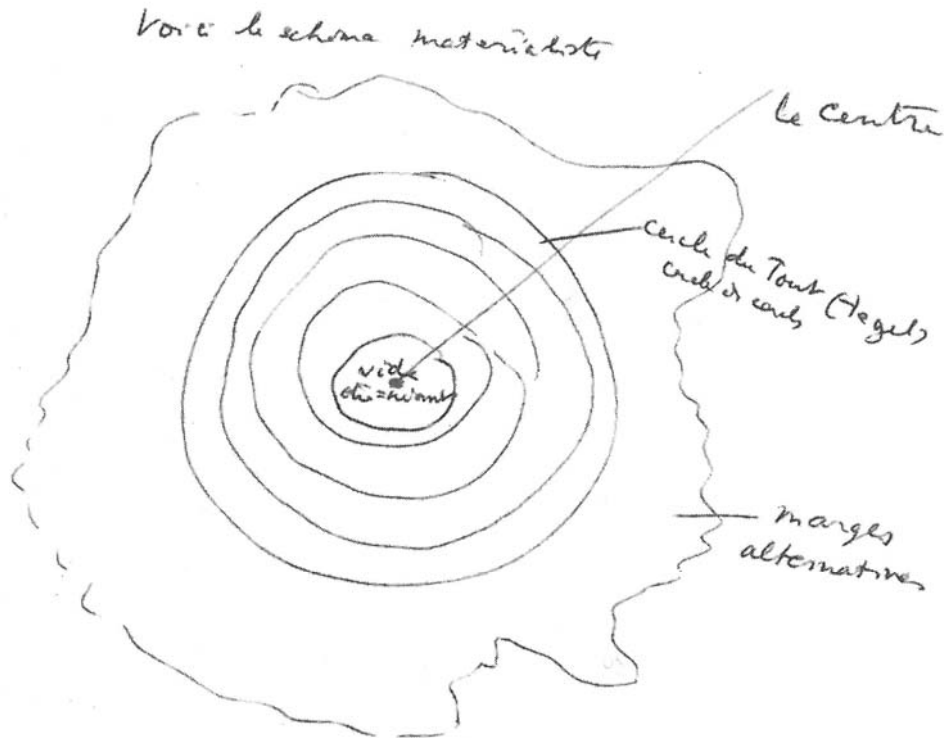 Voici le schéma matérialiste
le centre
cercle du Tout (Hegel)
cercle de cercles
vide
être=néant
marges
alternatives